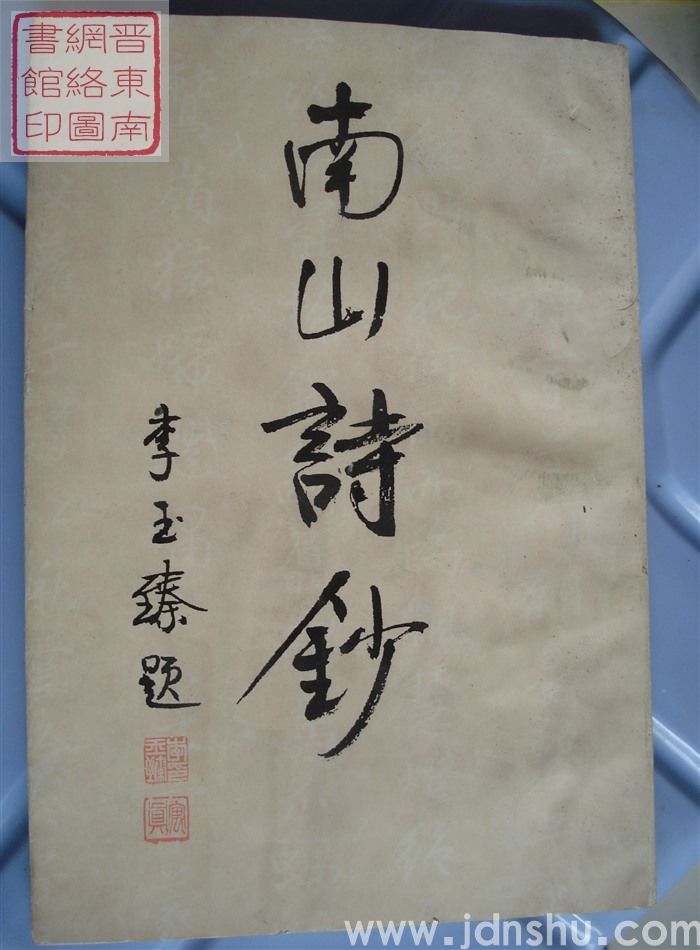 晋東南
網絡圖
書館印
南山詩鈔
李玉臻题
www.jdnshu.com